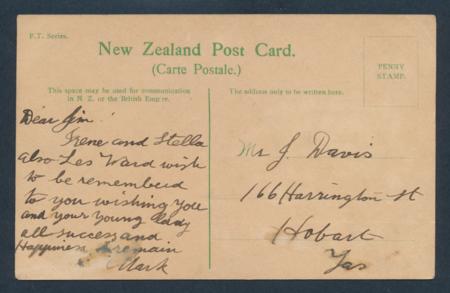 F.T. Series.
New Zealand Post Card.
(Carte Postale.)
PENNY
STAMP.
This space may be used for communication
in N.Z. or the British Empire.
The address only to be written here.
Dear Jim
Irene and Stella
also Les Ward wish
to be remembered
to you wishing you
and your young lady
all success and
Happiness remain
Mark
Mr J. Davis
166 Harrington St
Hobart
Tas